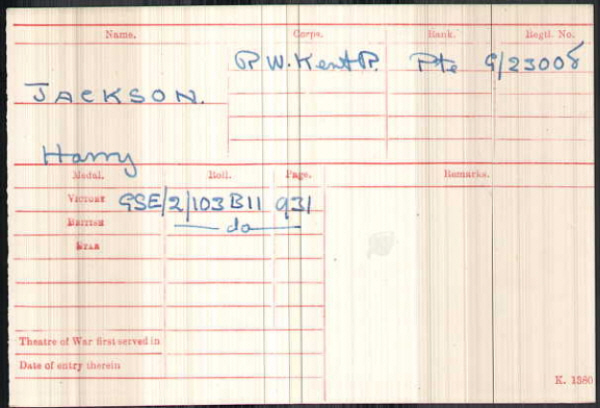 Name. Corps. Rank. Regtl. No.
R W. Kent R. Pte G/23008
JACKSON.
Harry
Medal. Roll. Page. Remarks.
VICTORY GSE/2/103 B11 931
BRITISH do
STAR
Theatre of War first served in
Date of entry therein
K. 1380